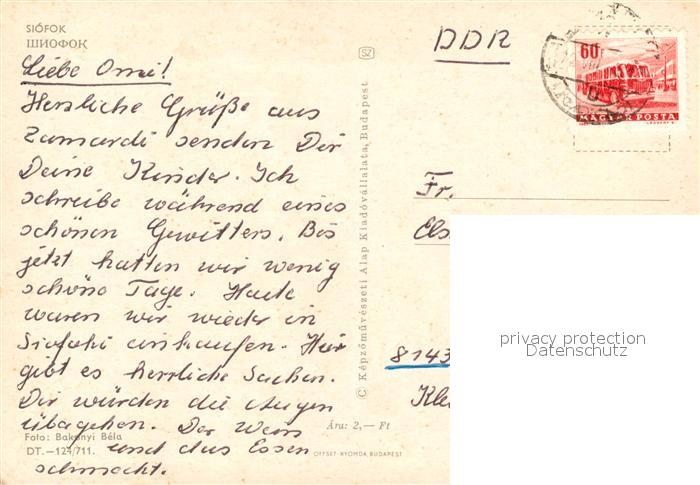 SIÓFOK
ШИОФОК
Liebe Omi!
Herzliche Grüße aus
Zamardi senden Dir
Deine Kinder. Ich
schreibe während eines
schönen Gewitters. Bis
jetzt hatten wir wenig
schöne Tage. Heute
waren wir wieder in
Siofoki einkaufen. Hier
gibt es herrliche Sachen.
Dir würden die Augen
übagehen. Der Wein
und das Essen
schmeckt.
Foto: Bakonyi Béla
DT.—124/711.
Ára: 2,— Ft
OFFSET-NYOMDA, BUDAPEST
© Képzőművészeti Alap Kiadóvállalata, Budapest
SZ
DDR
60
MAGYAR POSTA
Fr.
Els
8143
Kle
privacy protection
Datenschutz